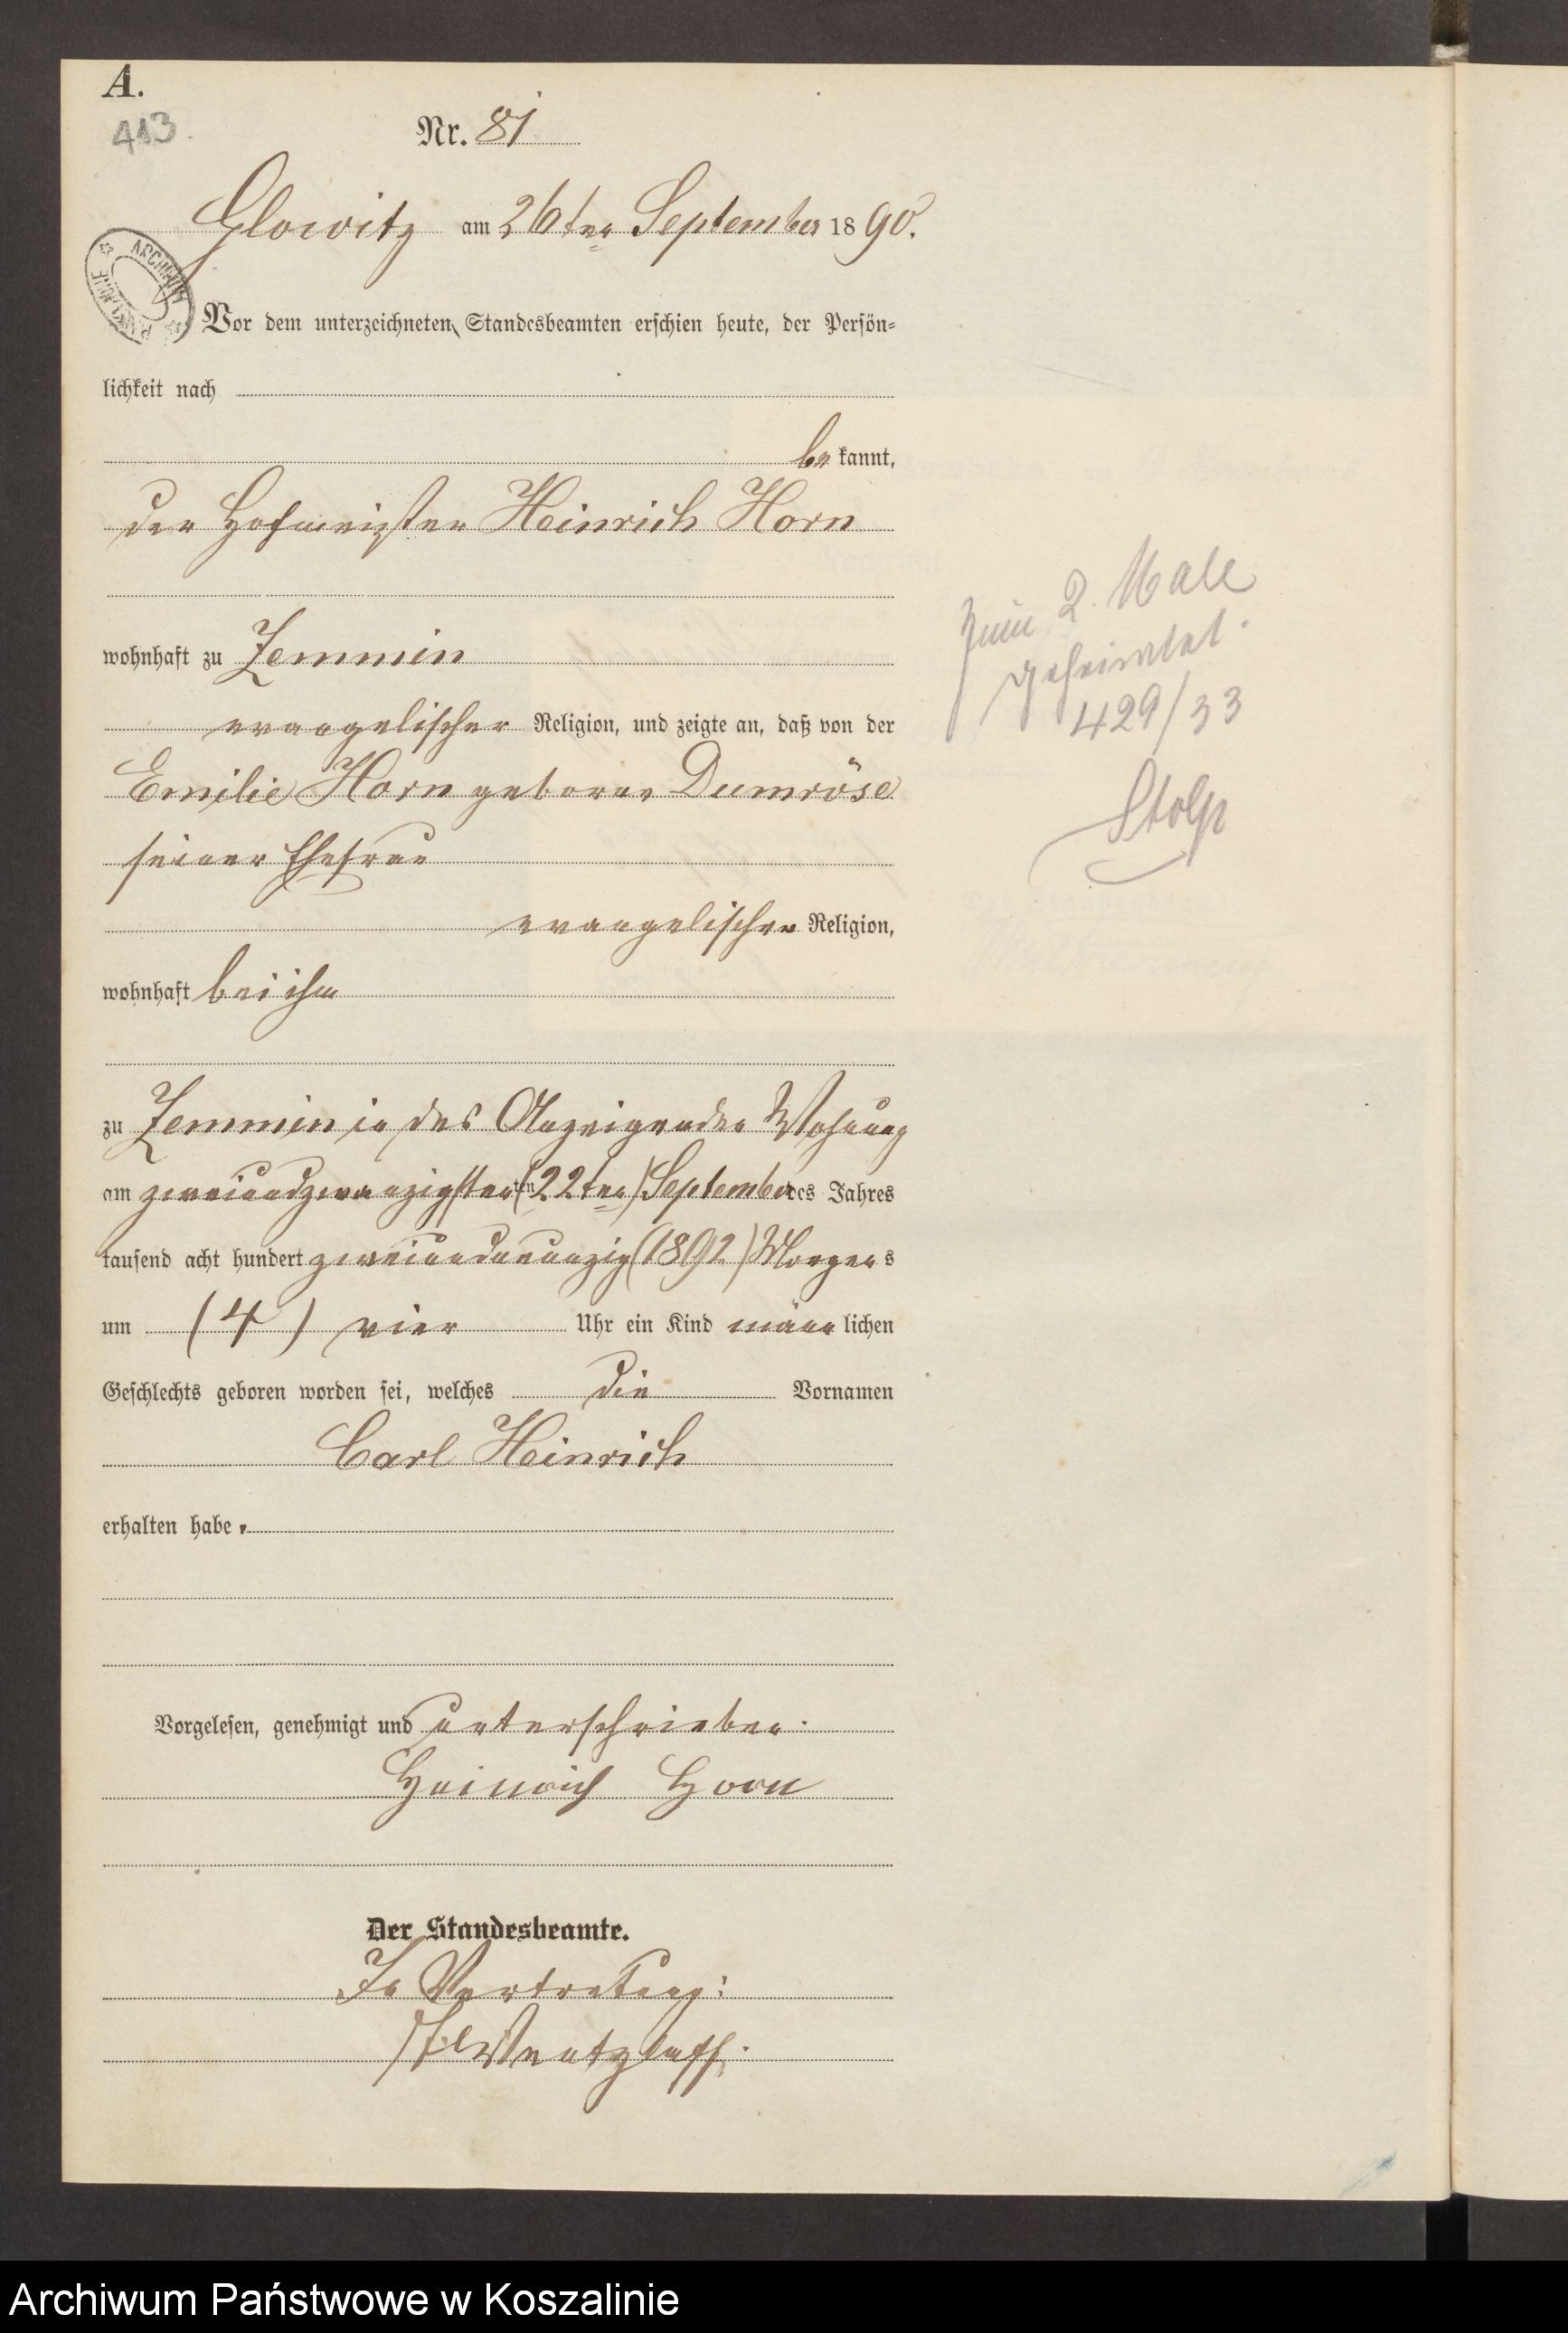 A.
413.
Nr. 81
Glowitz am 26ten September 1890.
ARCHIWUM
Vor dem unterzeichneten Standesbeamten erschien heute, der Persön=
lichkeit nach
bekannt,
der Hofmeister Heinrich Horn
wohnhaft zu Zemmin
evangelischer Religion, und zeigte an, daß von der
Emilie Horn geborne Dumröse
seiner Ehefrau
evangelischer Religion,
wohnhaft bei ihm
zu Zemmin in des Anzeigenden Wohnung
am zweiundzwanzigsten ten (22ten) September des Jahres
tausend acht hundert zweiundneunzig (1892) Morgens
um (4) vier Uhr ein Kind männlichen
Geschlechts geboren worden sei, welches die Vornamen
Carl Heinrich
erhalten habe.
Vorgelesen, genehmigt und unterschrieben.
Heinrich Horn
Der Standesbeamte.
In Vertretung:
Wentzlaff.
Zum 2. Male
geheiratet.
429/33
Stolp
Archiwum Państwowe w Koszalinie